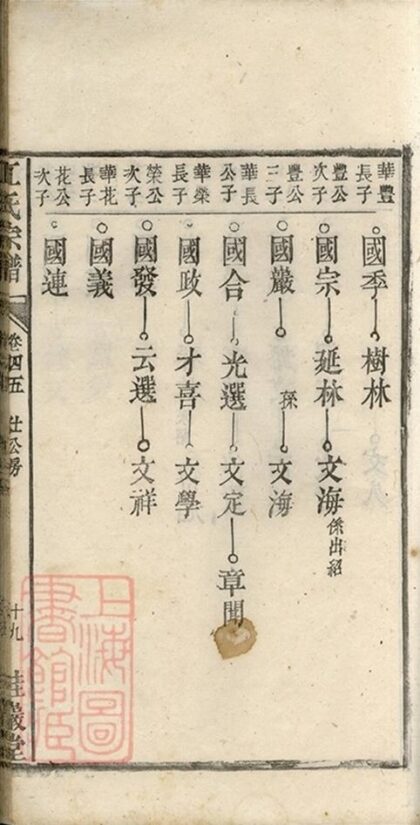 華豐長子 國季 樹林
豐公次子 國宗 延林 文海 係出紹
豐公三子 國嚴 孫 文海
華長公子 國合 光選 文定 章聞
華榮長子 國政 才喜 文學
榮公次子 國發 云選 文祥
華花長子 國義
花公次子 國連
氏宗譜
卷四五 仕公房
十九
上海圖書館藏